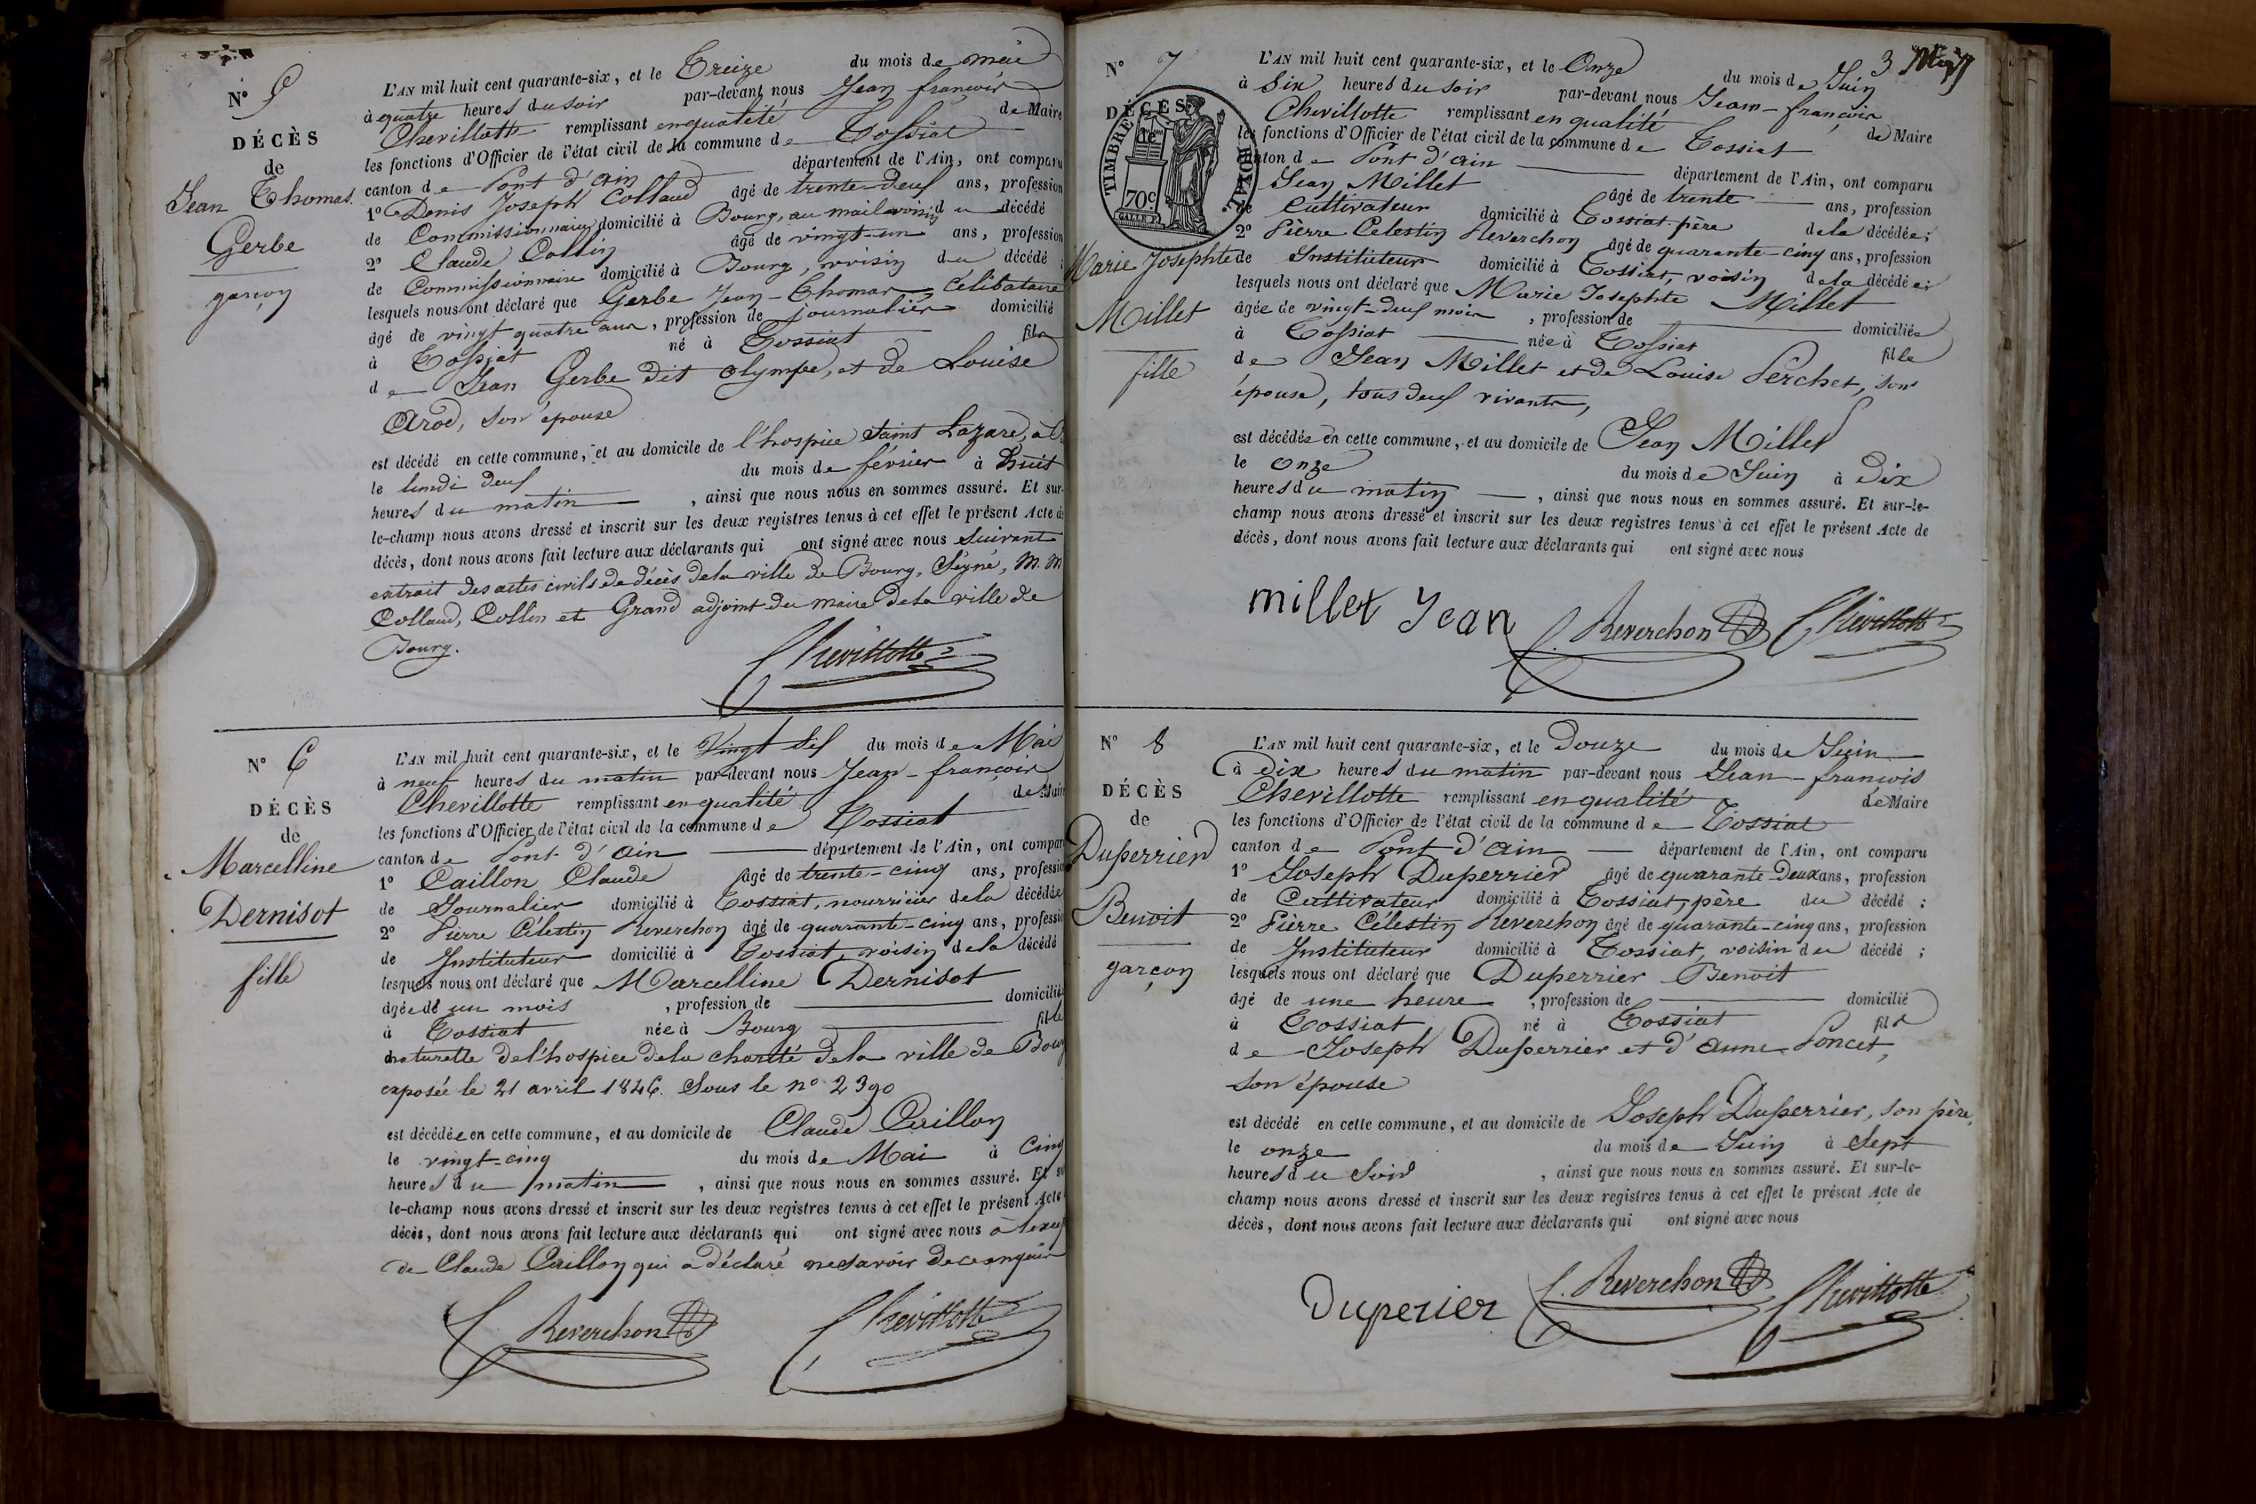 N° 5
DÉCÈS
de
Jean Thomas
Gerbe
garçon
L'AN mil huit cent quarante-six, et le Treize du mois de mai
à quatre heures du soir par-devant nous Jean françois
Chevillotte remplissant en qualité de Maire
les fonctions d'Officier de l'état civil de la commune de Tossiat
canton de Pont d'ain département de l'Ain, ont comparu
1° Denis Joseph Colland âgé de trente-deux ans, profession
de Commissionnaire domicilié à Bourg, au mail voisin du décédé
2° Claude Collin âgé de vingt-un ans, profession
de Commissionnaire domicilié à Bourg, voisin du décédé ;
lesquels nous ont déclaré que Gerbe Jean-Thomas célibataire
âgé de vingt quatre ans, profession de journalier domicilié
à Tossiat né à Tossiat fils
de Jean Gerbe dit olympe, et de Louise
Arod, son épouse
est décédé en cette commune, et au domicile de l'hospice Saint Lazare, à
le lundi deux du mois de février à huit
heures du matin , ainsi que nous nous en sommes assuré. Et sur-
le-champ nous avons dressé et inscrit sur les deux registres tenus à cet effet le présent Acte de
décès, dont nous avons fait lecture aux déclarants qui ont signé avec nous Suivant
extrait des actes civils de décès de la ville de Bourg, Signé, M. M
Colland, Collin et Grand adjoint du maire de la ville de
Bourg.
Chevillotte
N° 6
DÉCÈS
de
Marcelline
Dernisot
fille
L'AN mil huit cent quarante-six, et le Vingt six du mois de Mai
à neuf heures du matin par-devant nous Jean-françois
Chevillotte remplissant en qualité de Maire
les fonctions d'Officier de l'état civil de la commune de Tossiat
canton de Pont d'ain département de l'Ain, ont comparu
1° Caillon Claude âgé de trente-cinq ans, profession
de Journalier domicilié à Tossiat, nourricier de la décédée
2° Pierre Célestin Reverchon âgé de quarante-cinq ans, profession
de Instituteur domicilié à Tossiat, voisin de la décédé
lesquels nous ont déclaré que Marcelline Dernisot
âgée de un mois , profession de domiciliée
à Tossiat née à Bourg fille
naturelle de l'hospice de la charité de la ville de Bourg
exposée le 21 avril 1846. Sous le n° 2390
est décédée en cette commune, et au domicile de Claude Caillon
le vingt-cinq du mois de Mai à Cinq
heures du matin , ainsi que nous nous en sommes assuré. Et sur
le-champ nous avons dressé et inscrit sur les deux registres tenus à cet effet le présent Acte
décès, dont nous avons fait lecture aux déclarants qui ont signé avec nous
de Claude Caillon qui a déclaré ne savoir de ce enquis
C. Reverchon Chevillotte
3
N° 7
DÉCÈS
de
TIMBRE ROYAL
70c
Marie Josephte
Millet
fille
L'AN mil huit cent quarante-six, et le Onze du mois de Juin
à Six heures du soir par-devant nous Jean-françois
Chevillotte remplissant en qualité de Maire
les fonctions d'Officier de l'état civil de la commune de Tossiat
canton de Pont d'ain département de l'Ain, ont comparu
Jean Millet âgé de trente ans, profession
de Cultivateur domicilié à Tossiat père de la décédée ;
2° Pierre Celestin Reverchon âgé de quarante-cinq ans, profession
de Instituteur domicilié à Tossiat, voisin de la décédée ;
lesquels nous ont déclaré que Marie Josephte Millet
âgée de vingt-deux mois , profession de domiciliée
à Tossiat née à Tossiat fille
de Jean Millet et de Louise Perchet, son
épouse, tous deux vivants,
est décédée en cette commune, et au domicile de Jean Millet
le onze du mois de Juin à Dix
heures du matin , ainsi que nous nous en sommes assuré. Et sur-le-
champ nous avons dressé et inscrit sur les deux registres tenus à cet effet le présent Acte de
décès, dont nous avons fait lecture aux déclarants qui ont signé avec nous
millet Jean C. Reverchon Chevillotte
N° 8
DÉCÈS
de
Duperrier
Benoit
garçon
L'AN mil huit cent quarante-six, et le Douze du mois de Juin
à Dix heures du matin par-devant nous Jean-françois
Chevillotte remplissant en qualité de Maire
les fonctions d'Officier de l'état civil de la commune de Tossiat
canton de Pont d'ain département de l'Ain, ont comparu
1° Joseph Duperrier âgé de quarante Deux ans, profession
de Cultivateur domicilié à Tossiat, père du décédé ;
2° Pierre Célestin Reverchon âgé de quarante-cinq ans, profession
de Instituteur domicilié à Tossiat, voisin du décédé ;
lesquels nous ont déclaré que Duperrier Benoit
âgé de une heure , profession de domicilié
à Tossiat né à Tossiat fils
de Joseph Duperrier et d'anne Poncet,
son épouse
est décédé en cette commune, et au domicile de Joseph Duperrier, son père,
le onze du mois de Juin à Sept
heures du Soir , ainsi que nous nous en sommes assuré. Et sur-le-
champ nous avons dressé et inscrit sur les deux registres tenus à cet effet le présent Acte de
décès, dont nous avons fait lecture aux déclarants qui ont signé avec nous
Duperier C. Reverchon Chevillotte